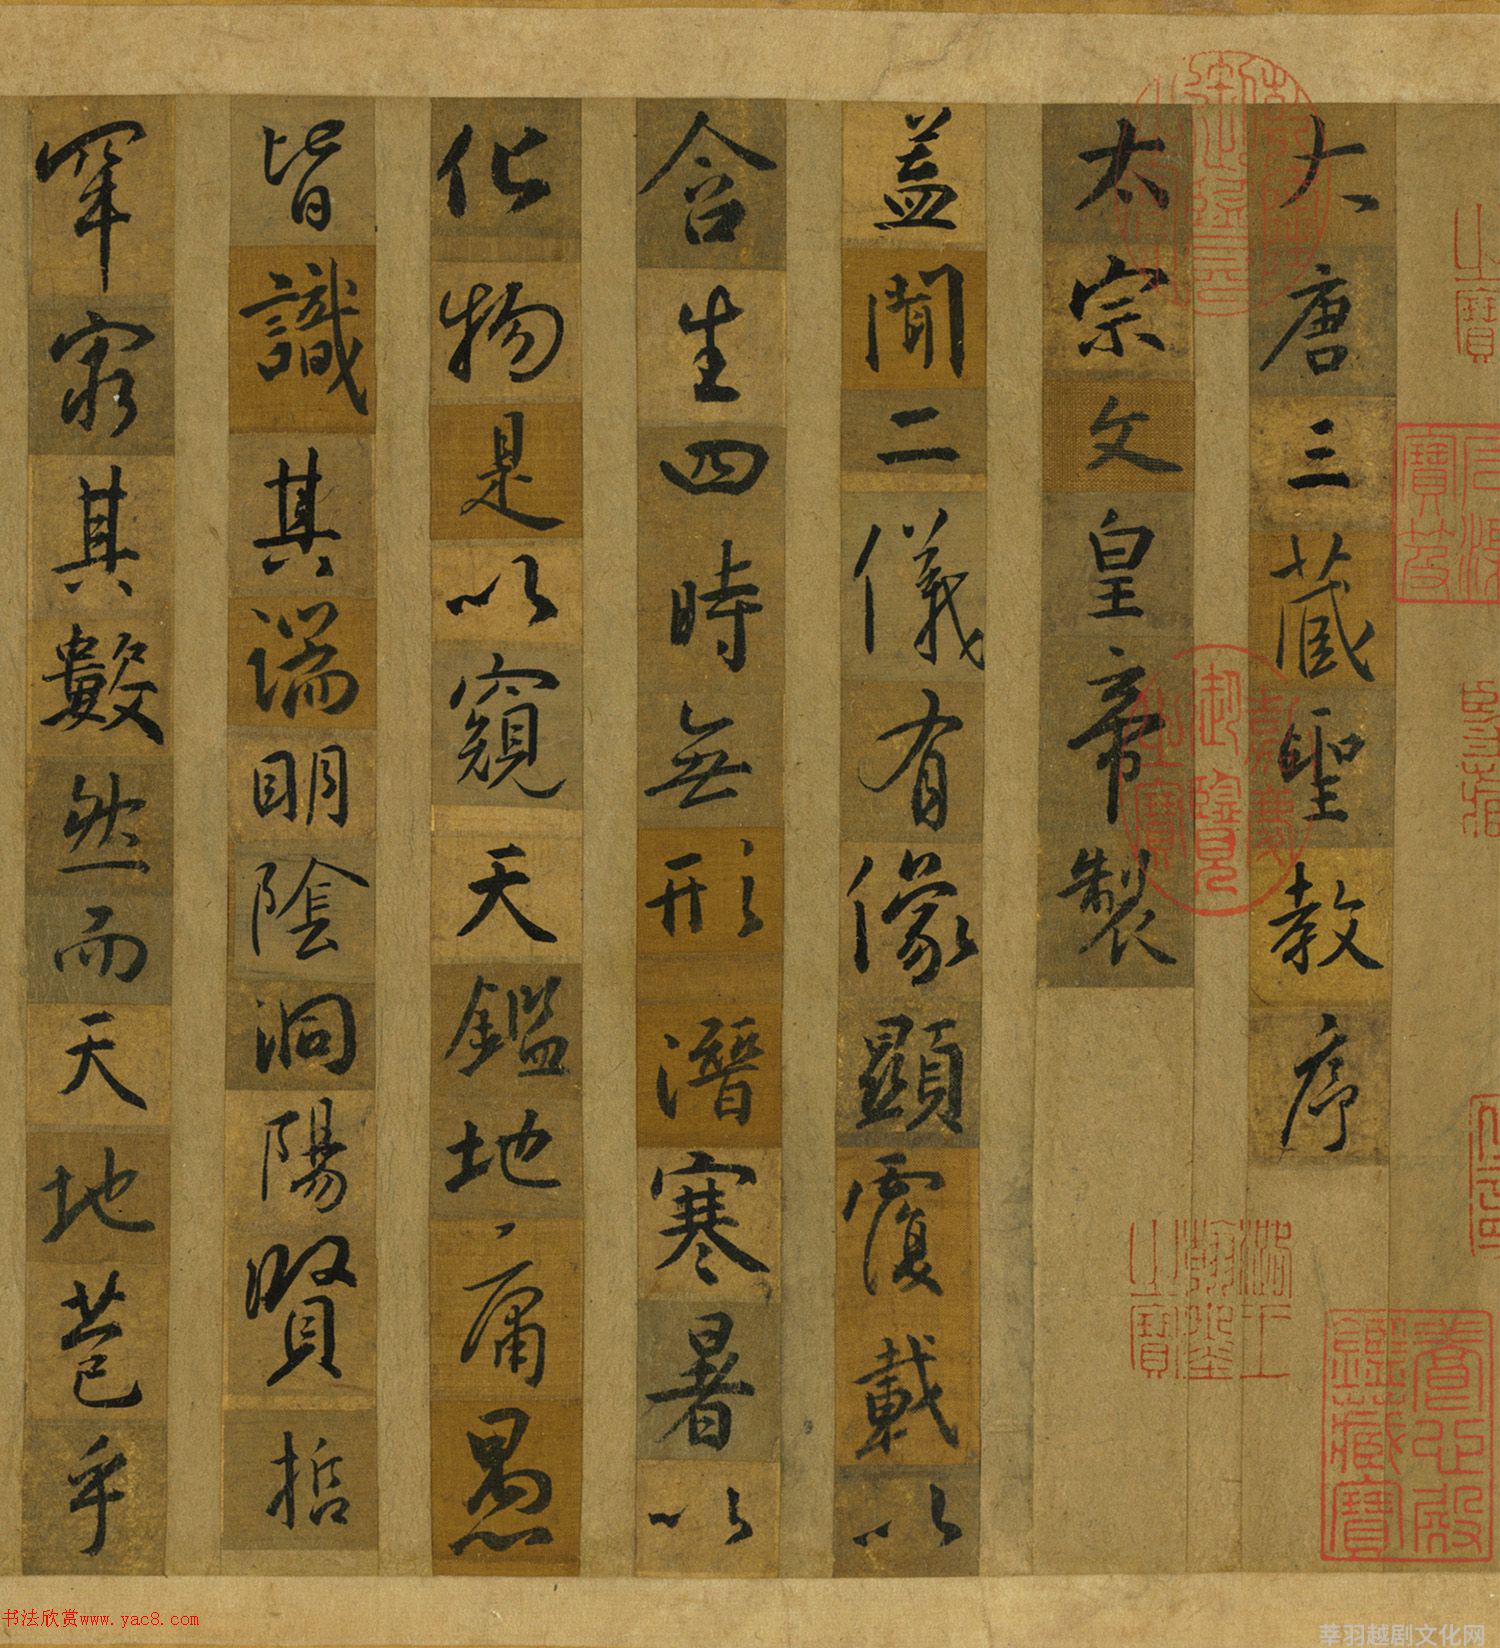 大唐三藏聖教序
太宗文皇帝製
蓋聞二儀有像顯覆載以
含生四時無形潛寒暑以
化物是以窺天鑑地庸愚
皆識其端明陰洞陽賢哲
罕窮其數然而天地苞乎
嘉慶御覽之寶
養心殿鑑藏寶
石渠寶笈
之寶
书法欣赏www.yac8.com
莘羽越剧文化网